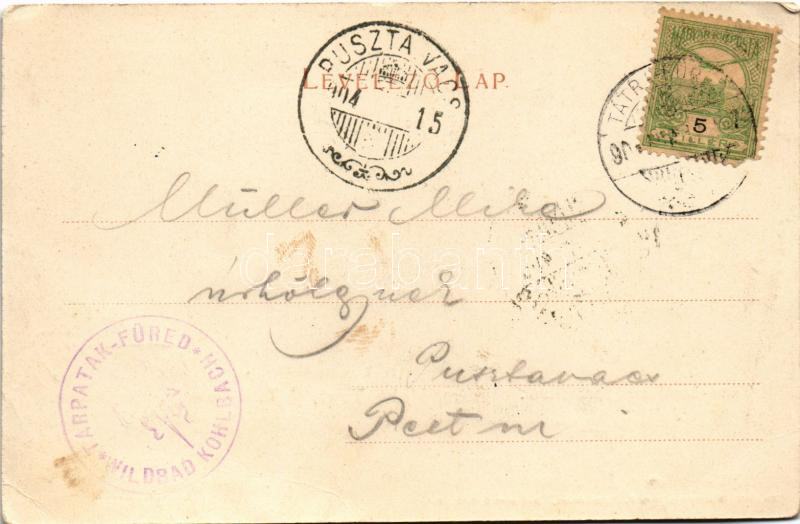 LEVELEZŐ-LAP.
PUSZTA VACS
904
15
MAGYAR KIR. POSTA
5
FILLÉR
TÁTRAFÜRED
Müller Mika
úrhölgynek
Pusztavacs
Pest m
TARPATAK-FÜRED * WILDBAD KOHLBACH *
darabanth